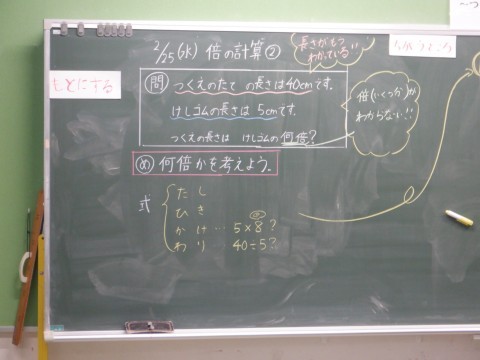 2/25(水) 倍の計算②
もとにする
長さがもう
わかっている!!
問 つくえのたての長さは40cmです。
けしゴムの長さは5cmです。
つくえの長さは けしゴムの何倍?
倍(いくつか)が
わからない!!
め 何倍かを考えよう。
式
たし
ひき
かけ…5×8?
わり…40÷5?